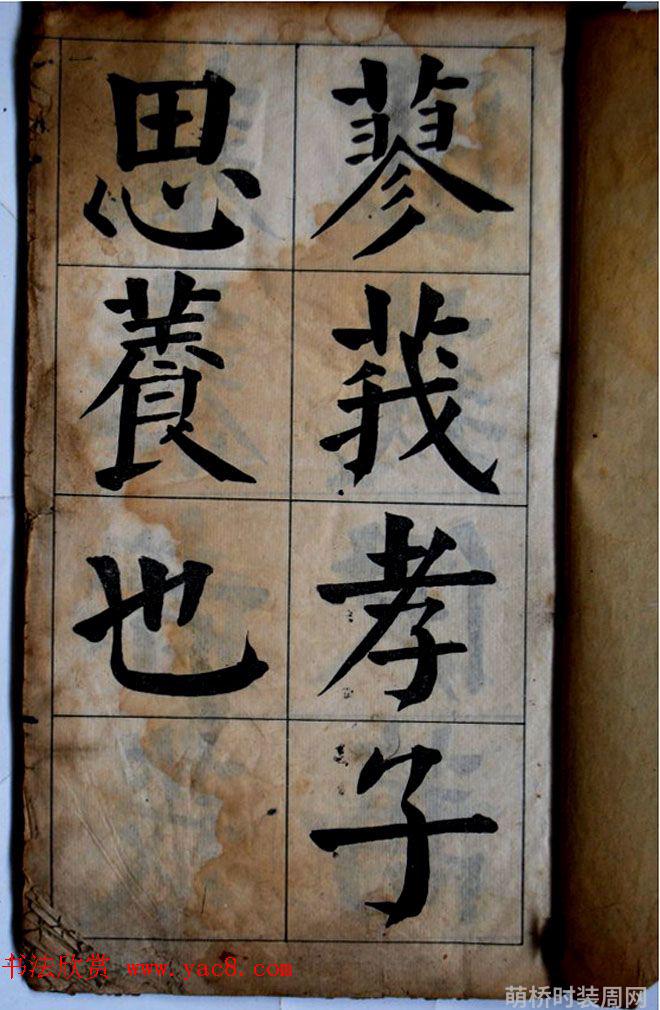 蓼莪孝子
思養也
书法欣赏 www.yac8.com
萌桥时装周网